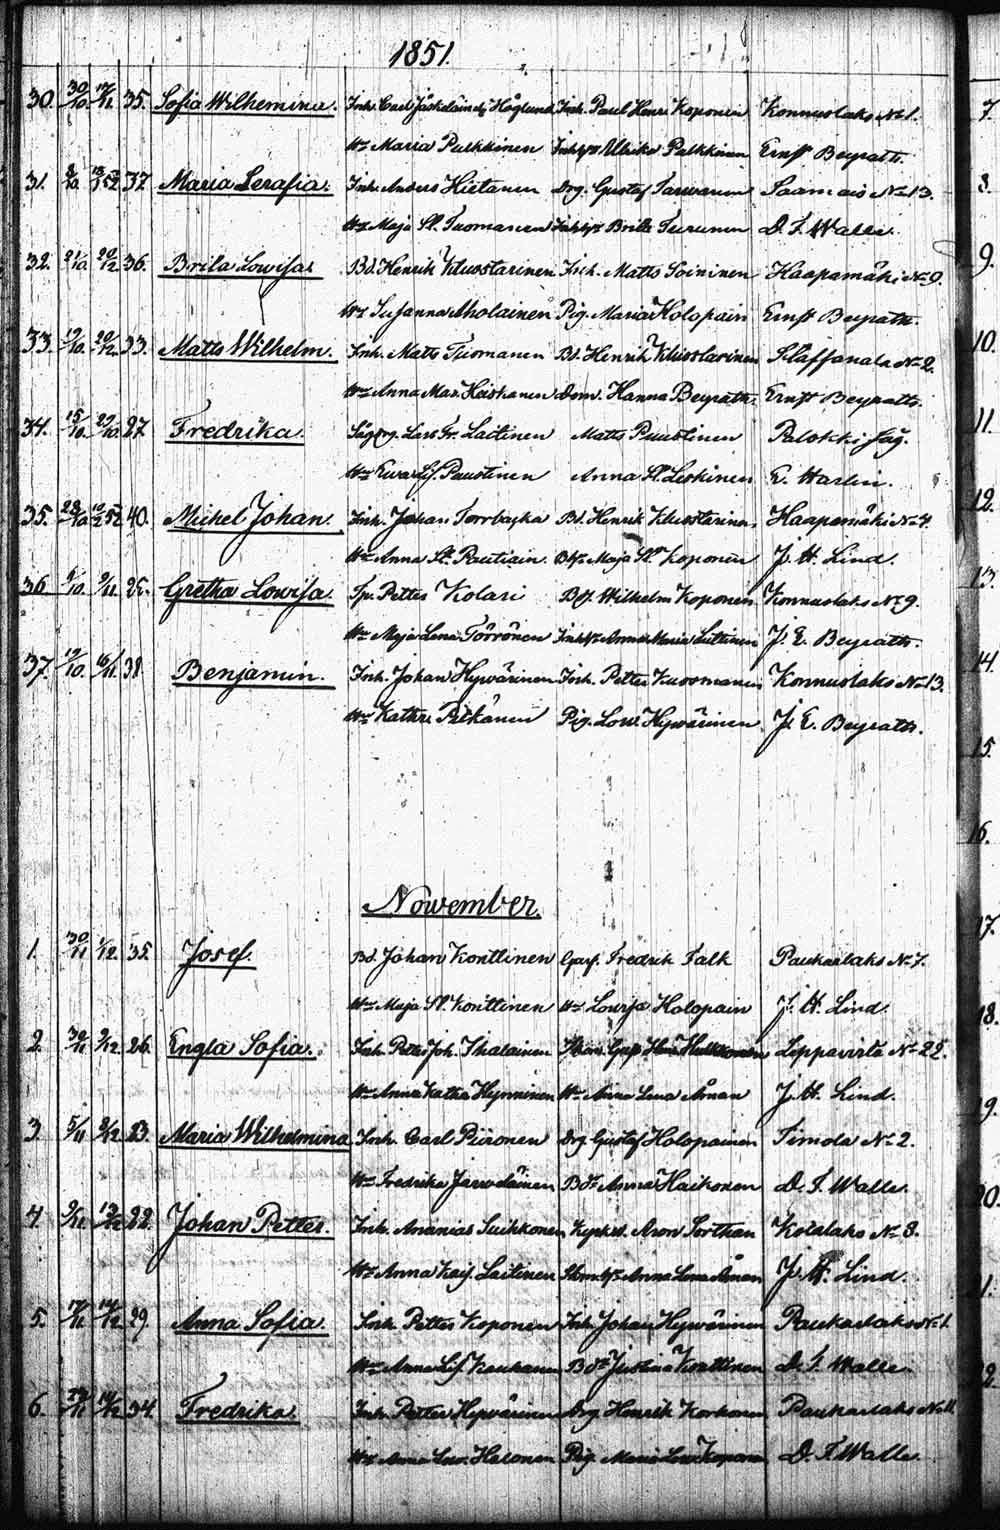 1851.
30. 30/10 17/11 35. Sofia Wilhemina. Inh. Carl Jääskeläinen, Höglund Inh. Paul Henr. Koponen Konnuslaks No 1.
Hu Maria Pulkkinen Inh. Ulrika Pulkkinen Ernst Beyrath.
31. 37. Maria Serafia. Inh. Anders Hietanen Drg. Gustaf Tarvanen Saamais No 13.
Hu Maja St. Tuomanen Brita Turunen D. F. Walle.
32. 21/10 20/12 36. Brita Lowisa Bd. Henrik Klusstarinen Inh. Matts Soininen Haapamäki No 9.
Hu Susanna Aholainen Pig. Maria Holopain Ernst Beyrath.
33. 19/10 20/12 33. Matts Wilhelm. Inh. Matts Tuomanen Bd. Henrik Klusstarinen No 2.
Hu Anna Mar. Heiskanen Dem. Hanna Beyrath. Ernst Beyrath.
34. 15/10 27. Fredrika. Lars Fr. Laitinen Matts Puustinen Palokki Såg.
Hu Ewa Puustinen Anna St. Leskinen E. Warlin.
35. 40. Michel Johan. Inh. Johan Bd. Henrik Klusstarinen Haapamäki No 4.
Hu Anna St. Pautiain. Maja St. Koponen J. H. Lind.
36. 9/11 25. Gretha Lowisa. Petter Kolari Wilhelm Koponen Konnuslaks No 9.
Hu Maja Lena Törrönen Anna Maria J. E. Beyrath.
37. 19/10. 16/11 38. Benjamin. Inh. Johan Hyvärinen Inh. Petter Kuosmanen Konnuslaks No 13.
Hu Kathr. Pitkänen Pig. Low. Hyvärinen J. E. Beyrath.
November.
1. 30/11 1/12. 35. Josef. Bd. Johan Konttinen Fredrik Falk Paukarlaks No 7.
Hu Maja St. Konttinen Hu Lowisa Holopain J. H. Lind.
2. 30/11 2/12 26. Engla Sofia. Inh. Petter Joh. Ihalainen Leppävirta No 22.
Hu Anna Katha Hynninen Hu Anna Lena Åman J. H. Lind.
3. 5/11 8/12 23. Maria Wilhelmina Inh. Carl Piironen Drg. Gustaf Holopainen Timola No 2.
Hu Fredrika Anna Haikonen D. F. Walle.
4. 9/11 22. Johan Petter. Inh. Ananias Suihkonen Aron Sorthan Kotalaks No 8.
Hu Anna Kajs. Laitinen Anna Lena Åman J. H. Lind.
5. 17/11 14/12 29. Anna Sofia. Inh. Petter Koponen Inh. Johan Hyvärinen Paukarlaks No 1.
Hu Anna Justina Konttinen D. F. Walle.
6. 14/12 34. Fredrika Inh. Petter Hyvärinen Drg. Henrik Korhonen Paukarlaks No 11.
Hu Anna Lov. Halonen Pig. Maria Low. Koponen D. F. Walle.
7.
8.
9.
10.
11.
12.
13.
14.
15.
16.
17.
18.